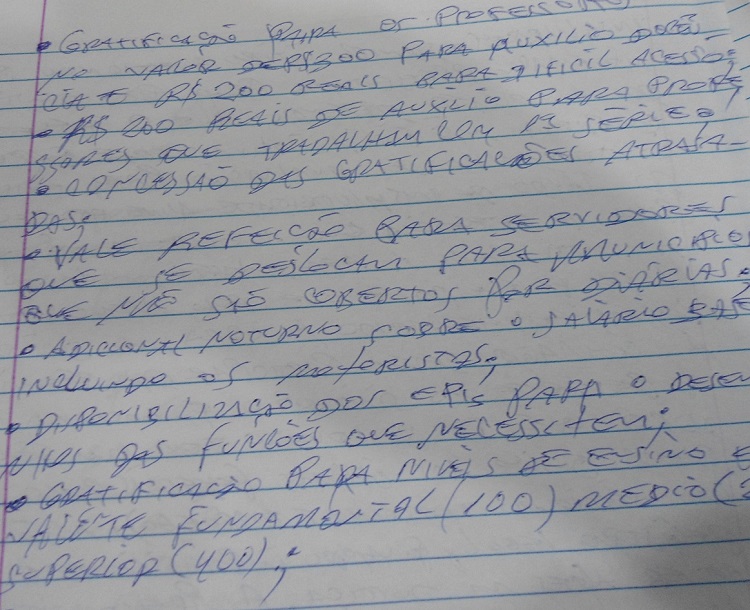 • GRATIFICAÇÃO PARA OS PROFESSORES
NO VALOR DE R$300 PARA AUXILIO DOCÊN-
CIA E R$ 200 REAIS PARA DIFICIL ACESSO;
• R$ 200 REAIS DE AUXÍLIO PARA PROFE
SSORES QUE TRABALHAM COM 1ª SÉRIE;
• CONCESSÃO DAS GRATIFICAÇÕES ATRASA-
DAS;
• VALE REFEIÇÃO PARA SERVIDORES
QUE SE DESLOCAM PARA MUNICIPIOS
QUE NÃO SÃO COBERTOS POR DIÁRIAS;
• ADICIONAL NOTURNO SOBRE O SALÁRIO BASE
INCLUINDO OS MOTORISTAS;
• DISPONIBILIZAÇÃO DOS EPIS PARA O DESEM
NHOS DAS FUNÇÕES QUE NECESSITEM;
• GRATIFICAÇÃO PARA NIVEIS DE ENSINO E
VALENTE FUNDAMONTAL (100) MEDIO (
SUPERIOR (400);